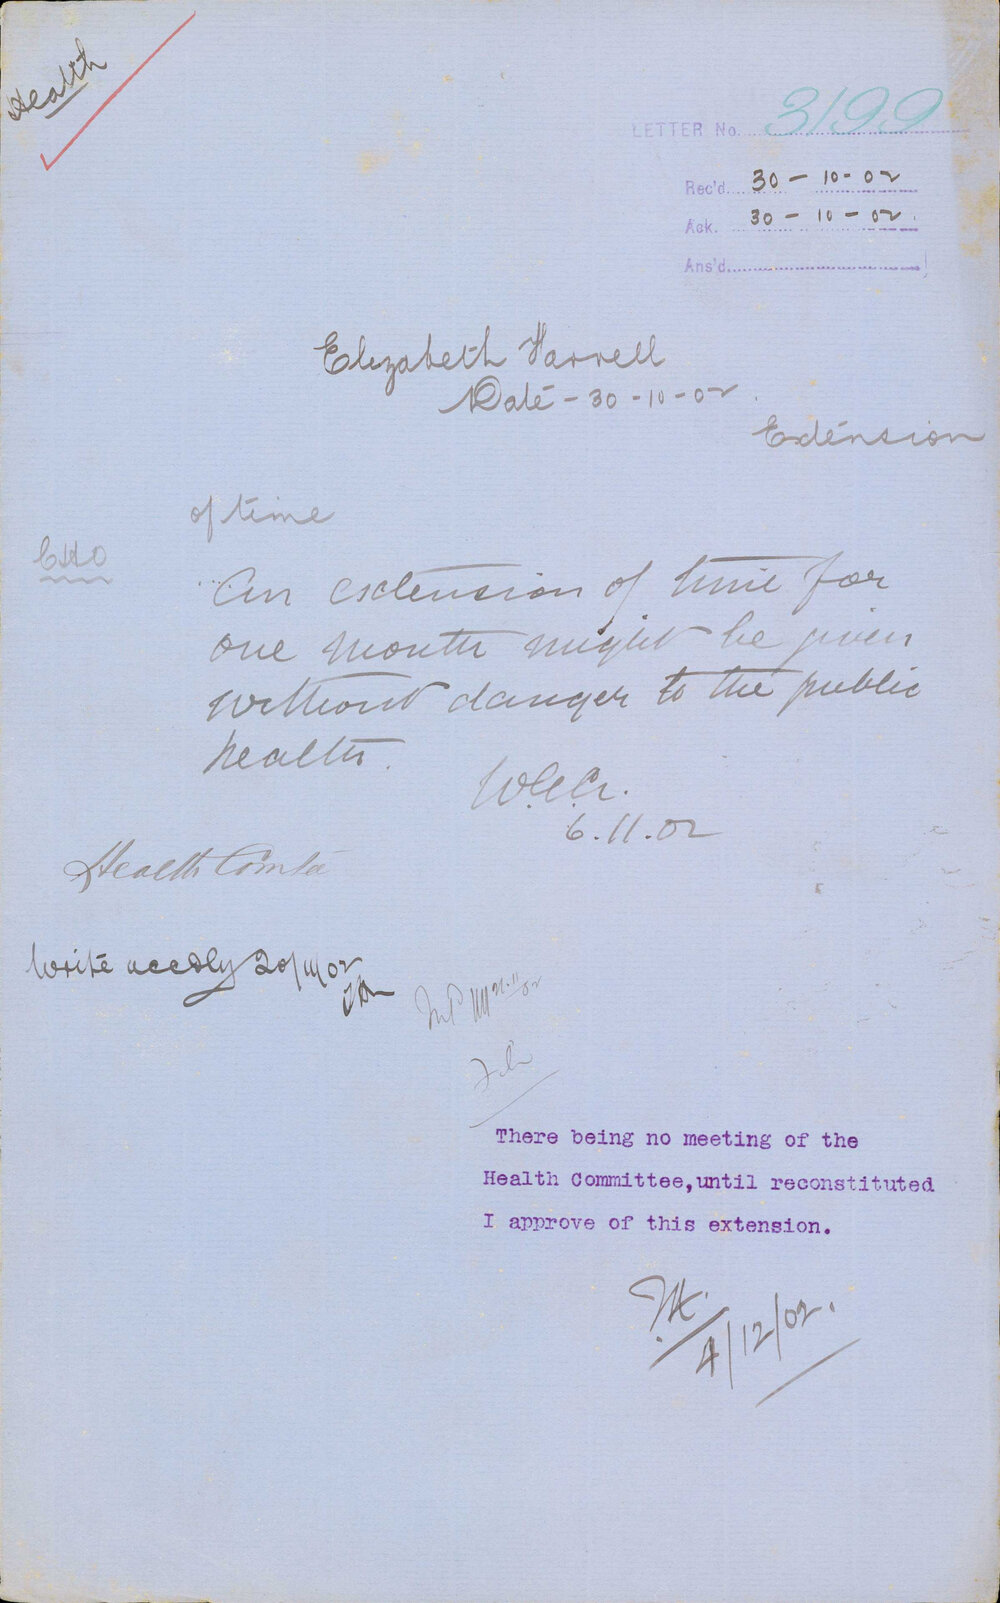 Health
LETTER No. 3199
Rec'd. 30-10-02
Ack. 30-10-02.
Ans'd.
Elizabeth Harrell
Date - 30-10-02.
Extension
of time
CHO
An extension of time for
one month might be given
without danger to the public
health.
6.11.02
Health Comtee
Write accdly 20/11/02
There being no meeting of the
Health Committee,until reconstituted
I approve of this extension.
4/12/02.